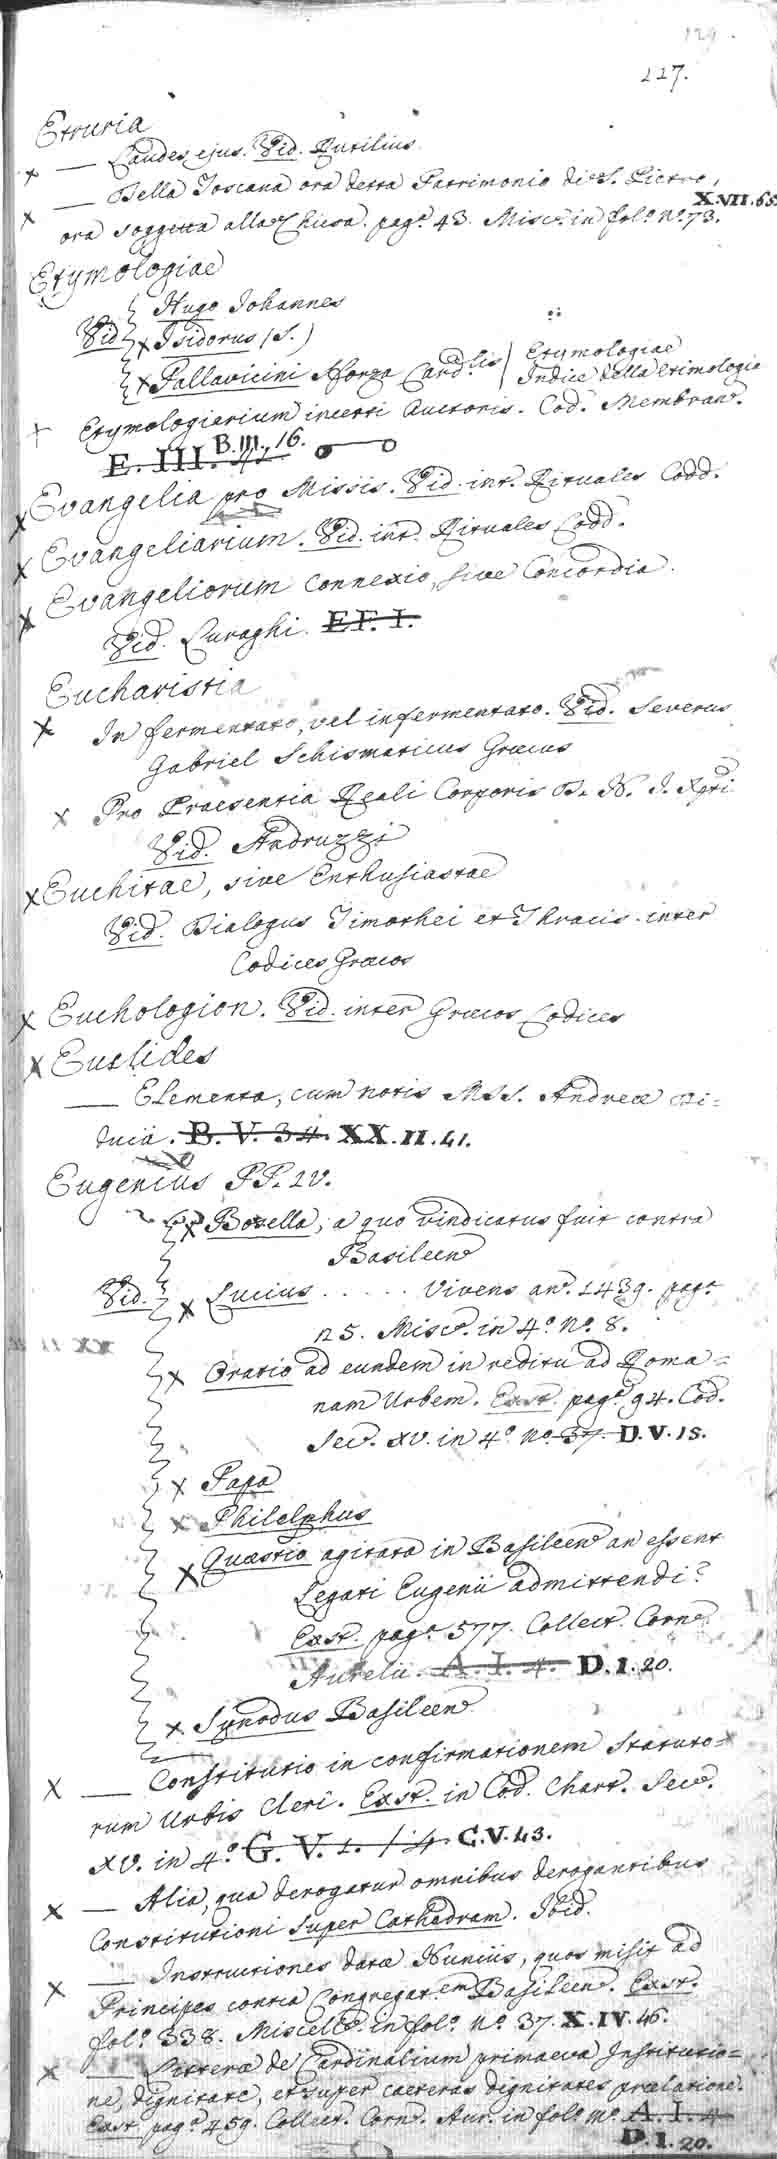 129.
127.
Etruria
x — Laudes ejus. Vid. Rutilius.
x — Bella Toscana ora detta Patrimonio di S. Pietro,
ora soggetta alla Chiesa. pag.ª 43. Misc. in fol.º nº. 73. X.VII.65
Etymologiae
Hugo Johannes
Vid x Isidorus (S.)
x Pallavicini Sforza Card.lis / Etymologiae
Indice della etimologia
+ Etymologierium incerti Auctoris. Cod. Membran.
E. III. B.III. 16.
x Evangelia pro Missis. Vid. int. Rituales Codd.
x Evangeliarium. Vid. int. Rituales Codd.
x Evangeliorum connexio, sive Concordia.
Vid. Luraghi. EF. I.
Eucharistia
x In fermentato, vel infermentato. Vid. Severus
Gabriel Schismaticus Græcus
x Pro Praesentia Reali Corporis D. N. J. Xpti
Vid. Andruzzi
x Euchitae, sive Enthusiastae
Vid. Dialogus Timothei et Thracis inter
Codices Græcos
x Euchologion. Vid. inter Græcos Codices
x Euclides
— Elementa, cum notis MSS. Andreæ
B. V. 34. XX.II.41.
Eugenius PP. IV.
x Borella, a quo vindicatus fuit contra
Basileen
Vid. x Lucius . . . . . Vivens an. 1439. pag.ª
25. Misc. in 4.º Nº. 8.
x Oratio ad eundem in reditu ad Roma=
nam Urbem. Exst. pag.ª 94. Cod.
Sec. XV. in 4.º nº. 37. D.V.15.
x Papa
x Philelphus
x Quæstio agitata in Basileen an essent
Legati Eugenii admittendi?
Exst. pag.ª 577. Collect. Corn.
Aurelii. A. I. 4. D.I.20.
x Synodus Basileen
x — Constitutio in confirmationem Statuto=
rum Urbis Cleri. Exst. in Cod. Chart. Sec.
XV. in 4.º G. V. 1. / 4 C.V.43.
x — Alia, qua derogatur omnibus derogantibus
Constitutioni super Cathedram. Ibid.
x — Instructiones datæ Nuntiis, quos misit ad
Principes contra Congregat.em Basileen. Exst.
fol.º 338. Miscell. in fol.º nº. 37. X.IV.46.
x — Litteræ de Cardinalium primaeva Institutio=
ne, dignitate, et super caeteras dignitates prælatione.
Exst. pag.ª 459. Collect. Corn. Aur. in fol.º nº. A. I. 4
D.I.20.